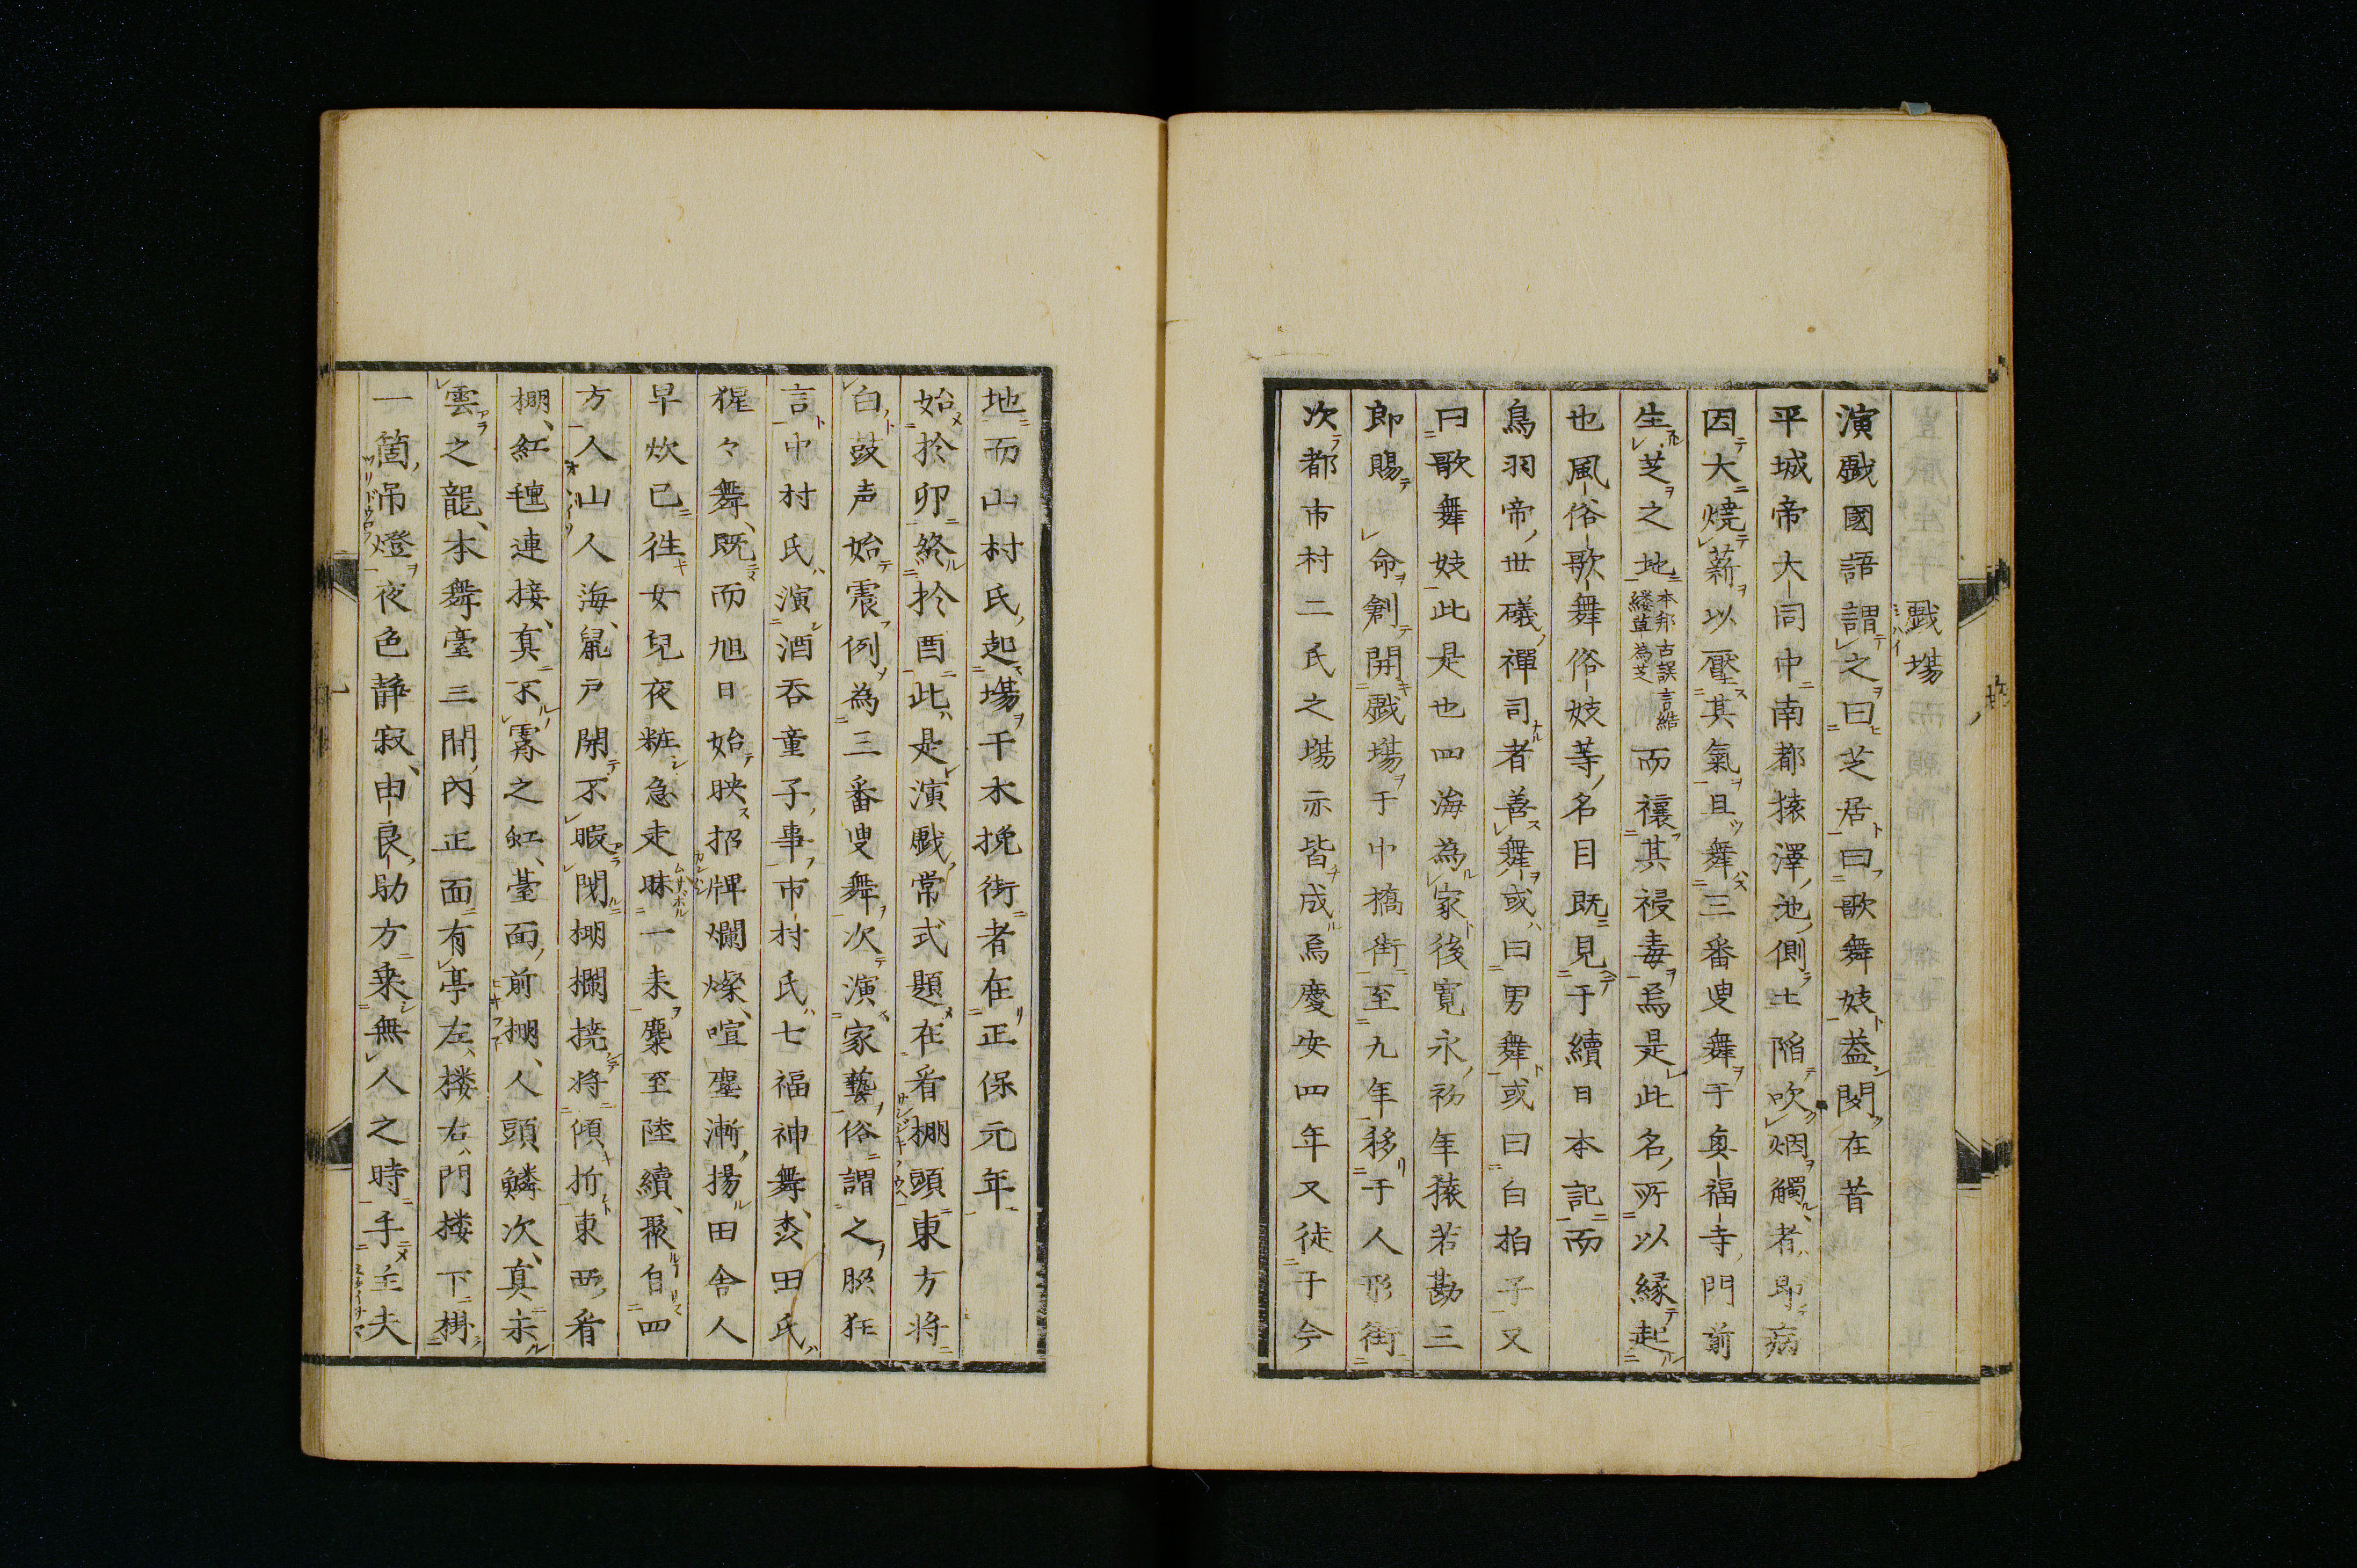 戯場
演戯國語謂之曰芝居曰歌舞妓葢閔在昔
平城帝大同中南都猿澤池側土陥吹烟觸者即病
因大燒薪以壓其氣且舞三番叟舞于興福寺門前
生芝之地本邦古誤言結縷草為芝而禳其祲毒焉是此名所以縁起
也風俗歌舞俗妓等名目既見于續日本記而
鳥羽帝世礒禪司者善舞或曰男舞或曰白拍子又
曰歌舞妓此是也四海為家後寛永初年猿若勘三
郎賜 命創開戯塲于中橋街至九年移于人形街
次都市村二氏之塲亦皆成焉慶安四年又徒于今
地而山村氏起塲于木挽街者在正保元年
始於卯終於酉此是演戯常式題在看棚頭東方将
白鼓声始震例為三番叟舞次演家藝俗謂之脇狂
言中村氏演酒呑童子事市村氏七福神舞森田氏
猩々舞既而旭日始映招牌爛燦喧塵漸揚田舎人
早炊已徃女兒夜粧急走昧一未麋至陸續聚自四
方人山人海鼠戸開不暇閲棚欄撓将傾折東西看
棚紅氊連接真不霽之虹臺面前棚人頭鱗次真未
雲之龍本舞臺三間内正面有亭左楼右門楼下掛
一箇吊燈夜色静寂由良助方乗無人之時手主夫